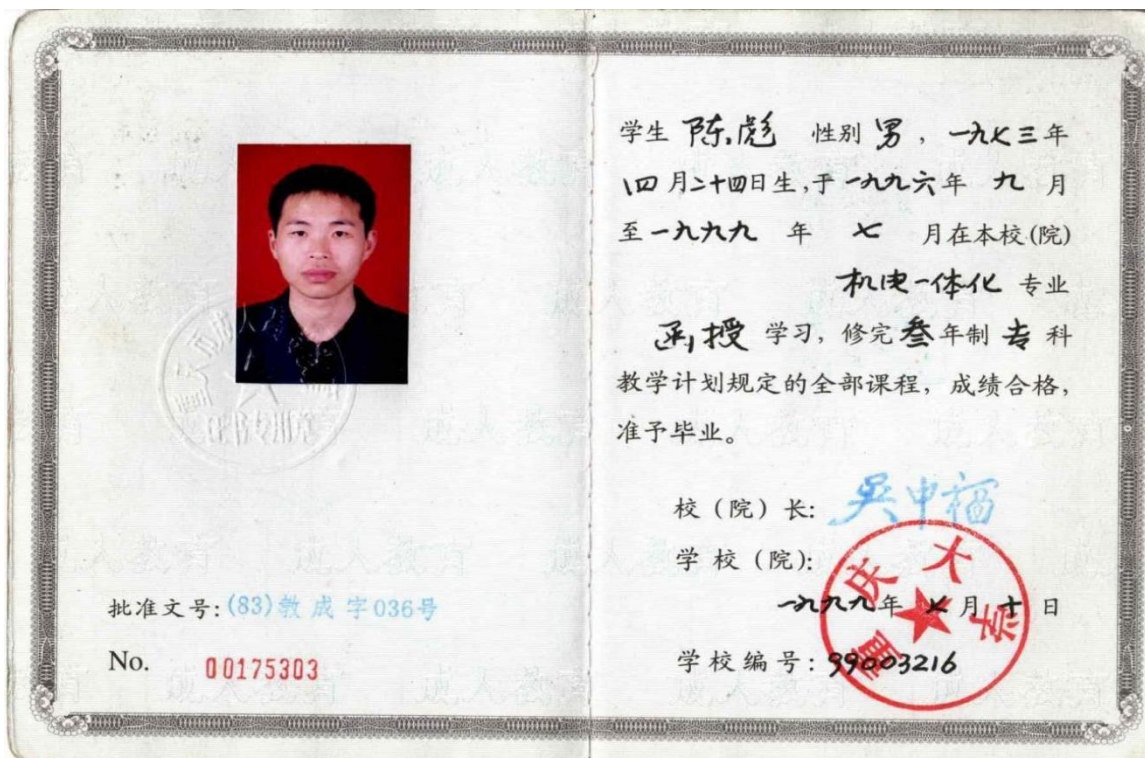 批准文号:(83)教成字036号
No. 00175303
证书专用章
学生 陈彪 性别 男 , 一九七三年
四月二十四日生,于一九九六年 九 月
至一九九九 年 七 月在本校(院)
机电一体化 专业
函授 学习, 修完叁年制 专 科
教学计划规定的全部课程, 成绩合格,
准予毕业。
校(院)长: 吴中福
学校(院):
重庆大学
一九九九年 七月 十 日
学校编号: 99003216
成人教育